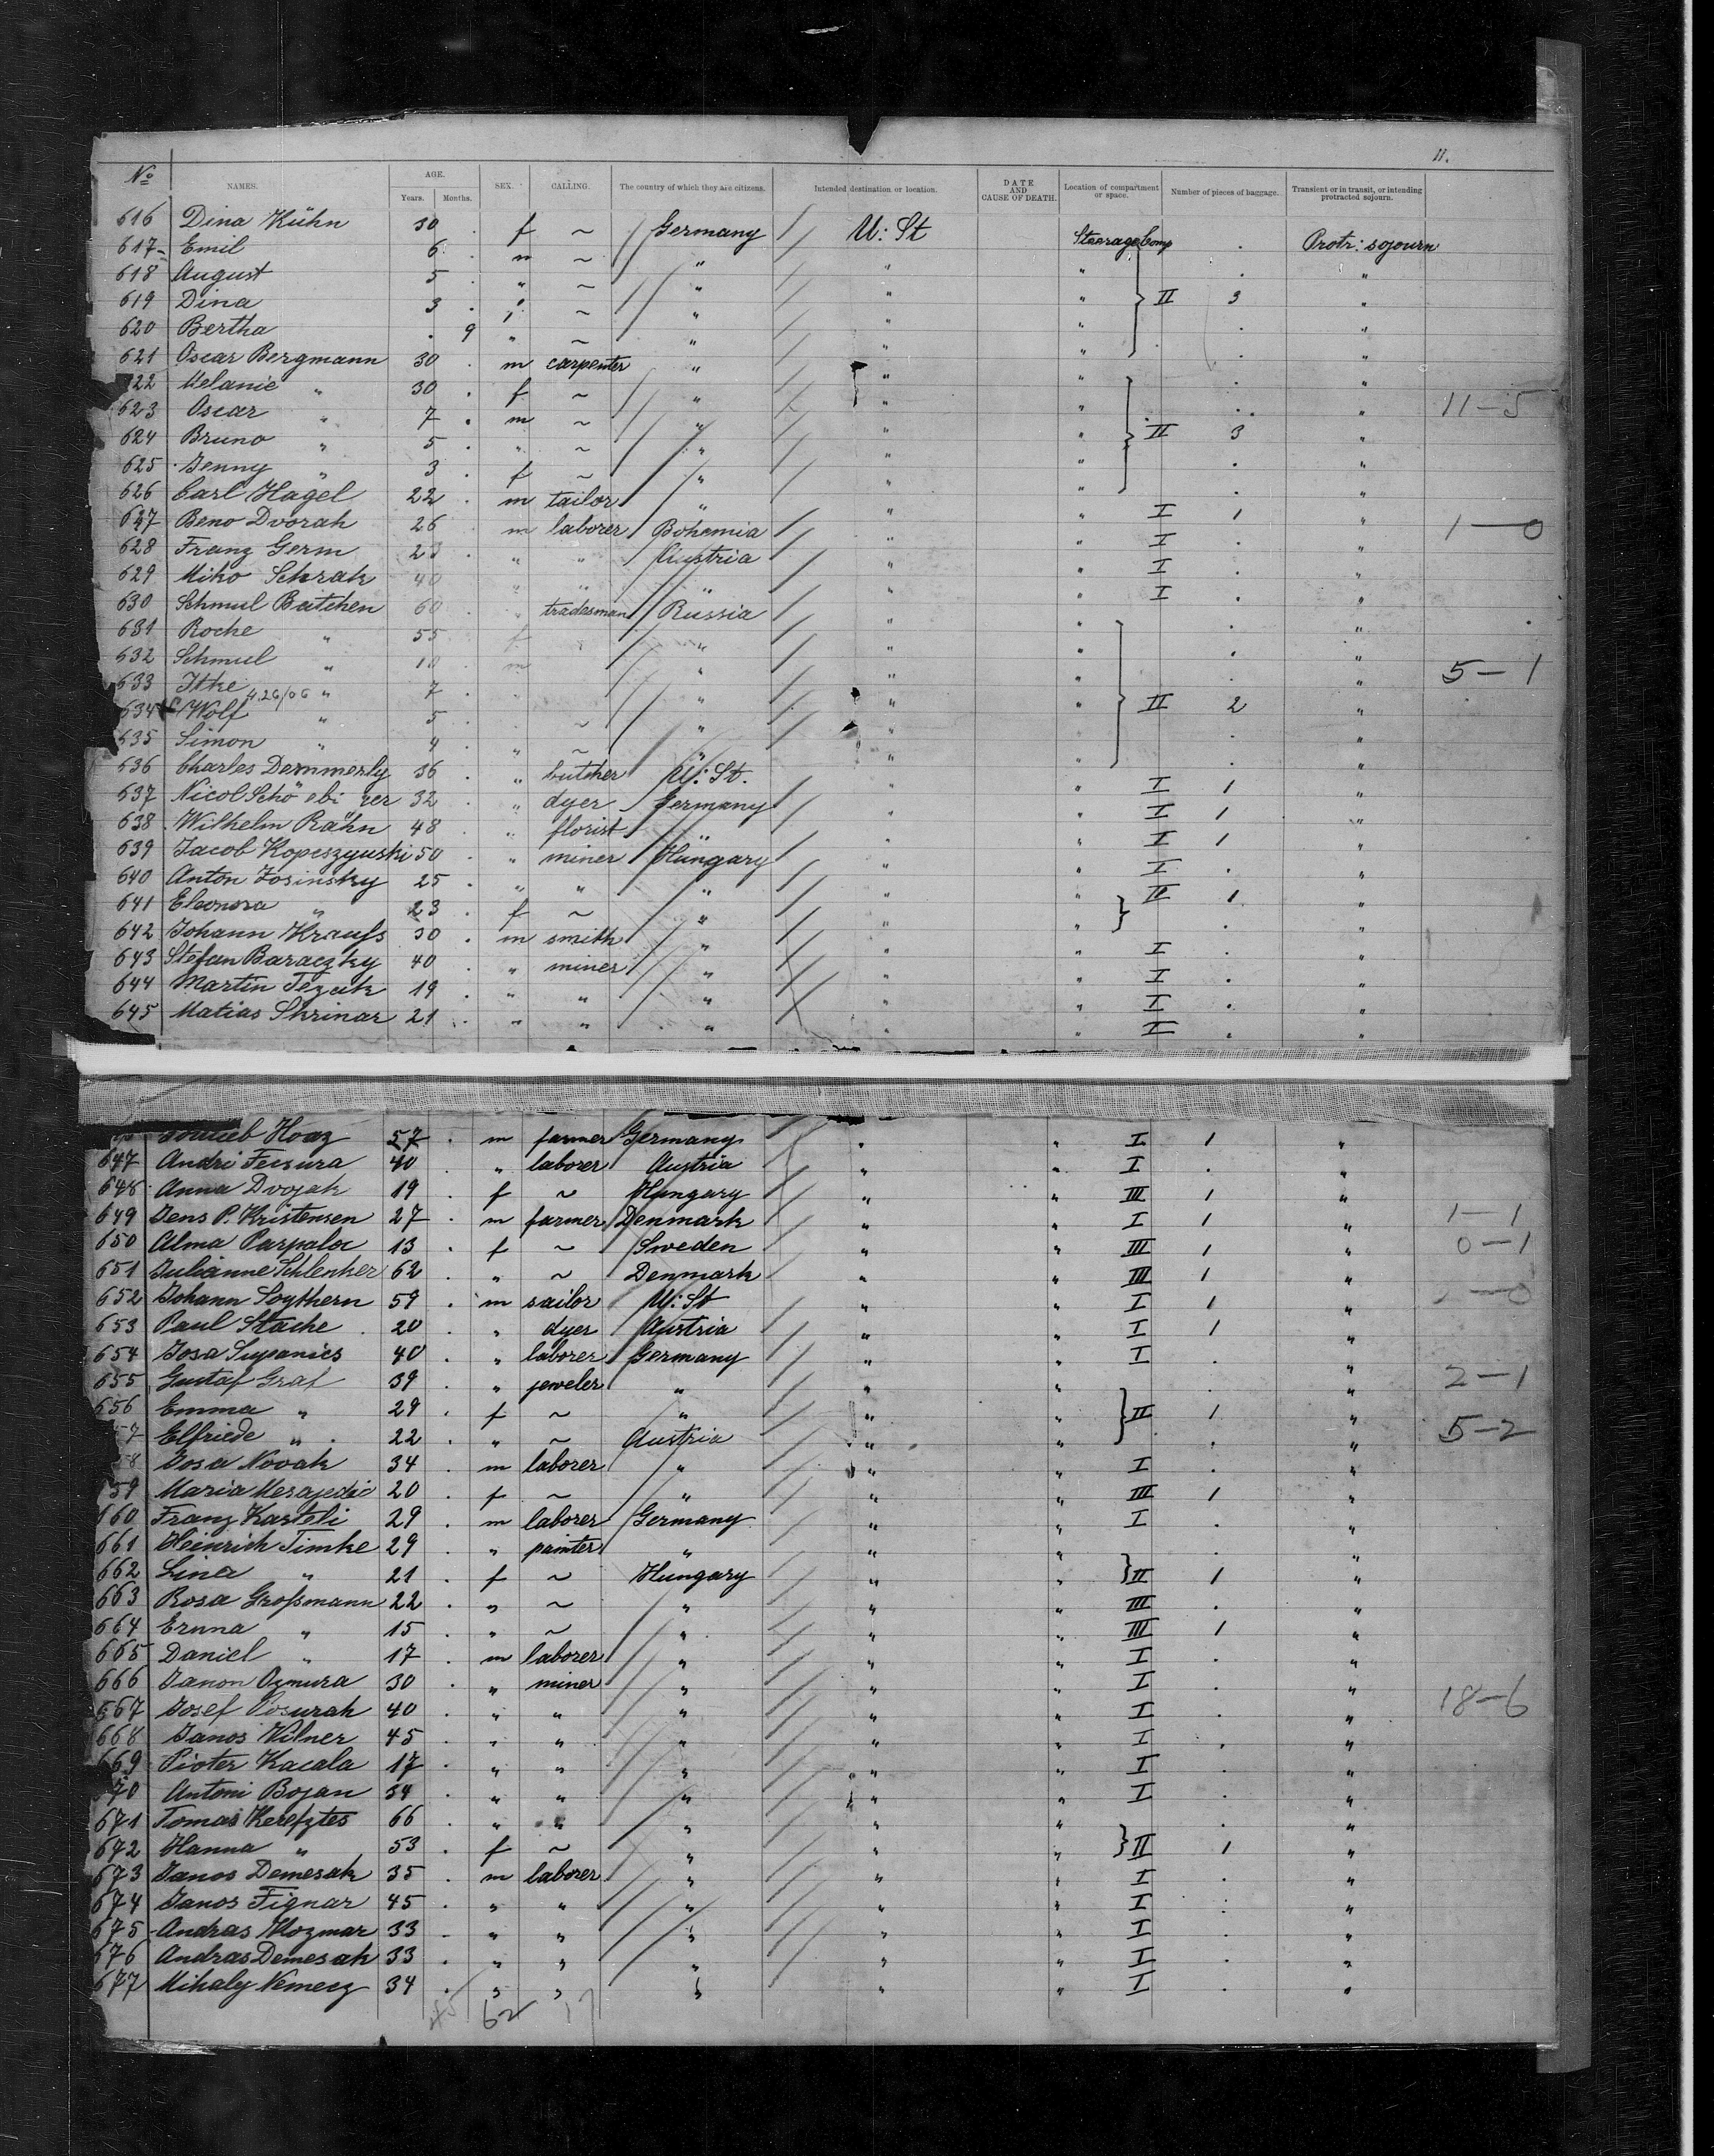 11.
No NAMES. AGE. Years. Months. SEX. CALLING. The country of which they are citizens. Intended destination or location. DATE AND CAUSE OF DEATH. Location of compartment or space. Number of pieces of baggage. Transient or in transit, or intending protracted sojourn.
616 Dina Kühn 30 . f ~ Germany U: St Steerage Comp . Protr: sojourn
617 Emil 6 . m ~ " " " . "
618 August 5 . " ~ " " " II 3 "
619 Dina 3 . ~ " " " . "
620 Bertha . 9 " ~ " " " . "
621 Oscar Bergmann 30 . m carpenter " " " . "
22 Melanie " 30 . f ~ " " " . " 11-5
623 Oscar " 7 . m ~ " " " II 3 "
624 Bruno " 5 . " ~ " " " . "
625 Jenny " 3 . f ~ " " " . "
626 Carl Hagel 22 . m tailor " " " I 1 "
627 Beno Dvorak 26 m laborer Bohemia " " I . " 1-0
628 Franz Germ 23 . " " Austria " " I . "
629 Miko Schrak 40 " " " " " I . "
630 Schmul Butchen 60 " tradesman Russia " " . "
631 Roche " 55 f " " " . "
632 Schmul " 10 m " " " . " 5-1
633 Itke " 7 . " " " " II 2 "
634 Wolf 4.26/06 " 5 . ~ " " " . "
635 Simon " 4 . " ~ " " " . "
636 Charles Demmerly 36 . " butcher U: St. " " I 1 "
637 Nicol 32 . " dyer Germany " " I 1 "
638 Wilhelm Rähn 48 . " florist " " " I 1 "
639 Jacob Kopeszyuski 50 . " miner Hungary " " I . "
640 Anton Josinsky 25 . " " " " " II 1 "
641 Eleonora " 23 . f ~ " " " . "
642 Johann Krauss 30 . m smith " " " I . "
643 Stefan Baraczky 40 . " miner " " " I . "
644 Martin Tezak 19 . " " " " " I . "
645 Matias Skrinar 21 . " " " " " I . "
Hoaz 57 . m farmer Germany " " I 1 "
647 Andri Fecsura 40 . " laborer Austria " " I . "
648 Anna Dvojak 19 . f ~ Hungary " " III 1 "
649 Jens P. Kristensen 27 . m farmer Denmark " " I 1 " 1-1
650 Alma Parpala 13 . f ~ Sweden " " III 1 " 0-1
651 Julianne Schlenker 62 . " ~ Denmark " " III 1 "
652 Johann Soythern 59 . m sailor U: St " " I 1 " -0
653 Paul Stache . 20 . " dyer Austria " " I 1 "
654 Josa Supanics 40 . " laborer Germany " " I . "
655 Gustaf Graf 39 . " jeweler " " " . " 2-1
656 Emma " 29 . f ~ " " " II 1 "
57 Elfriede " . 22 . " ~ Austria " " . " 5-2
58 Josa Novak 34 . m laborer " " " I . "
59 Maria 20 . f ~ " " " III 1 "
660 Franz Karteli 29 . m laborer Germany " " I . "
661 Heinrich Timke 29 . " painter " " " . "
662 Lina " 21 . f ~ Hungary " " II 1 "
663 Rosa Grossmann 22 . " ~ " " " III . "
664 Ernna " 15 . " ~ " " " III 1 "
665 Daniel " 17 . m laborer " " " I . "
666 Janon Ozmura 30 . " miner " " " I . "
667 Josef Posurak 40 . " " " " " I . " 18-6
668 Janos Vilner 45 . " " " " " I . "
669 Pioter Kacala 17 . " " " " " I . "
70 Antoni Bojan 34 . " " " " " I . "
671 Tomas Keresztes 66 . " " " " " . "
672 Hanna " 53 . f ~ " " " II 1 "
673 Janos Demesak 35 . m laborer " " " I . "
674 Janos Fignar 45 . " " " " " I . "
675 Andras Mozmar 33 - " " " " " I . "
676 Andras Demesak 33 . " " " " " I . "
677 Mihaly Nemecz 34 . " " " " " I . "
45 62 17